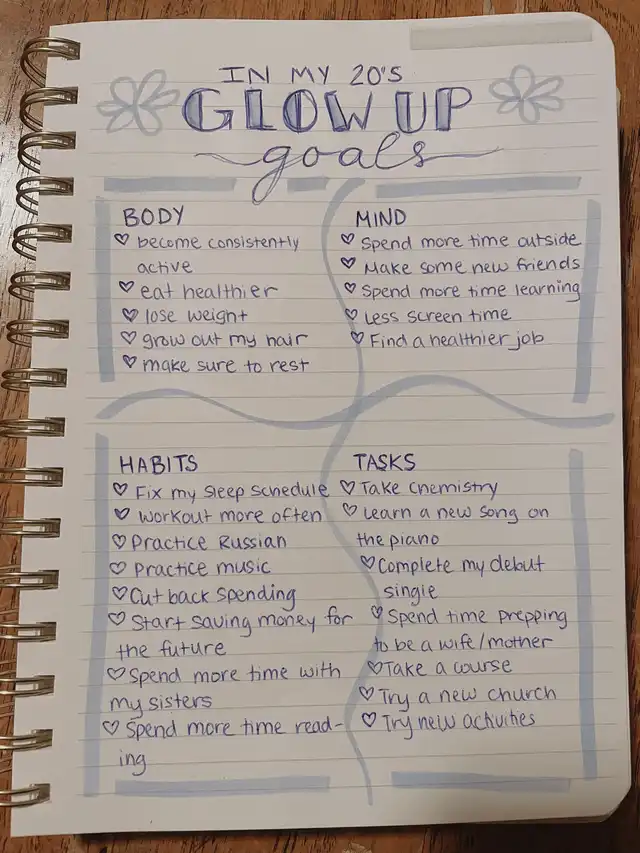 IN MY 20'S
GLOW UP
goals
BODY
♡ become consistently
active
♡ eat healthier
♡ lose weight
♡ grow out my hair
♡ make sure to rest
MIND
♡ Spend more time outside
♡ Make some new friends
♡ Spend more time learning
♡ Less screen time
♡ Find a healthier job
HABITS
♡ Fix my sleep schedule
♡ Workout more often
♡ Practice Russian
♡ Practice music
♡ Cut back spending
♡ Start saving money for
the future
♡ Spend more time with
my sisters
♡ Spend more time read-
ing
TASKS
♡ Take chemistry
♡ Learn a new song on
the piano
♡ Complete my debut
single
♡ Spend time prepping
to be a wife/mother
♡ Take a course
♡ Try a new church
♡ Try new activities